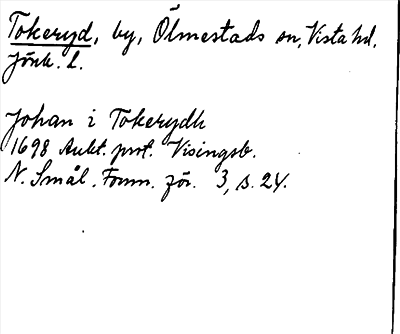 Tokeryd, by, Ölmestads sn, Vista hd,
Jönk. l.
Johan i Tokerydh
1698 Aukt. prot. Visingsb.
N. Smål. Forn. för. 3, s. 24.